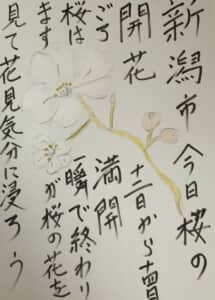 新潟市今日桜の
開花 日から十四日
ごろ 満開
桜は一瞬で終わり
ますが桜の花を
見て花見気分に浸ろう